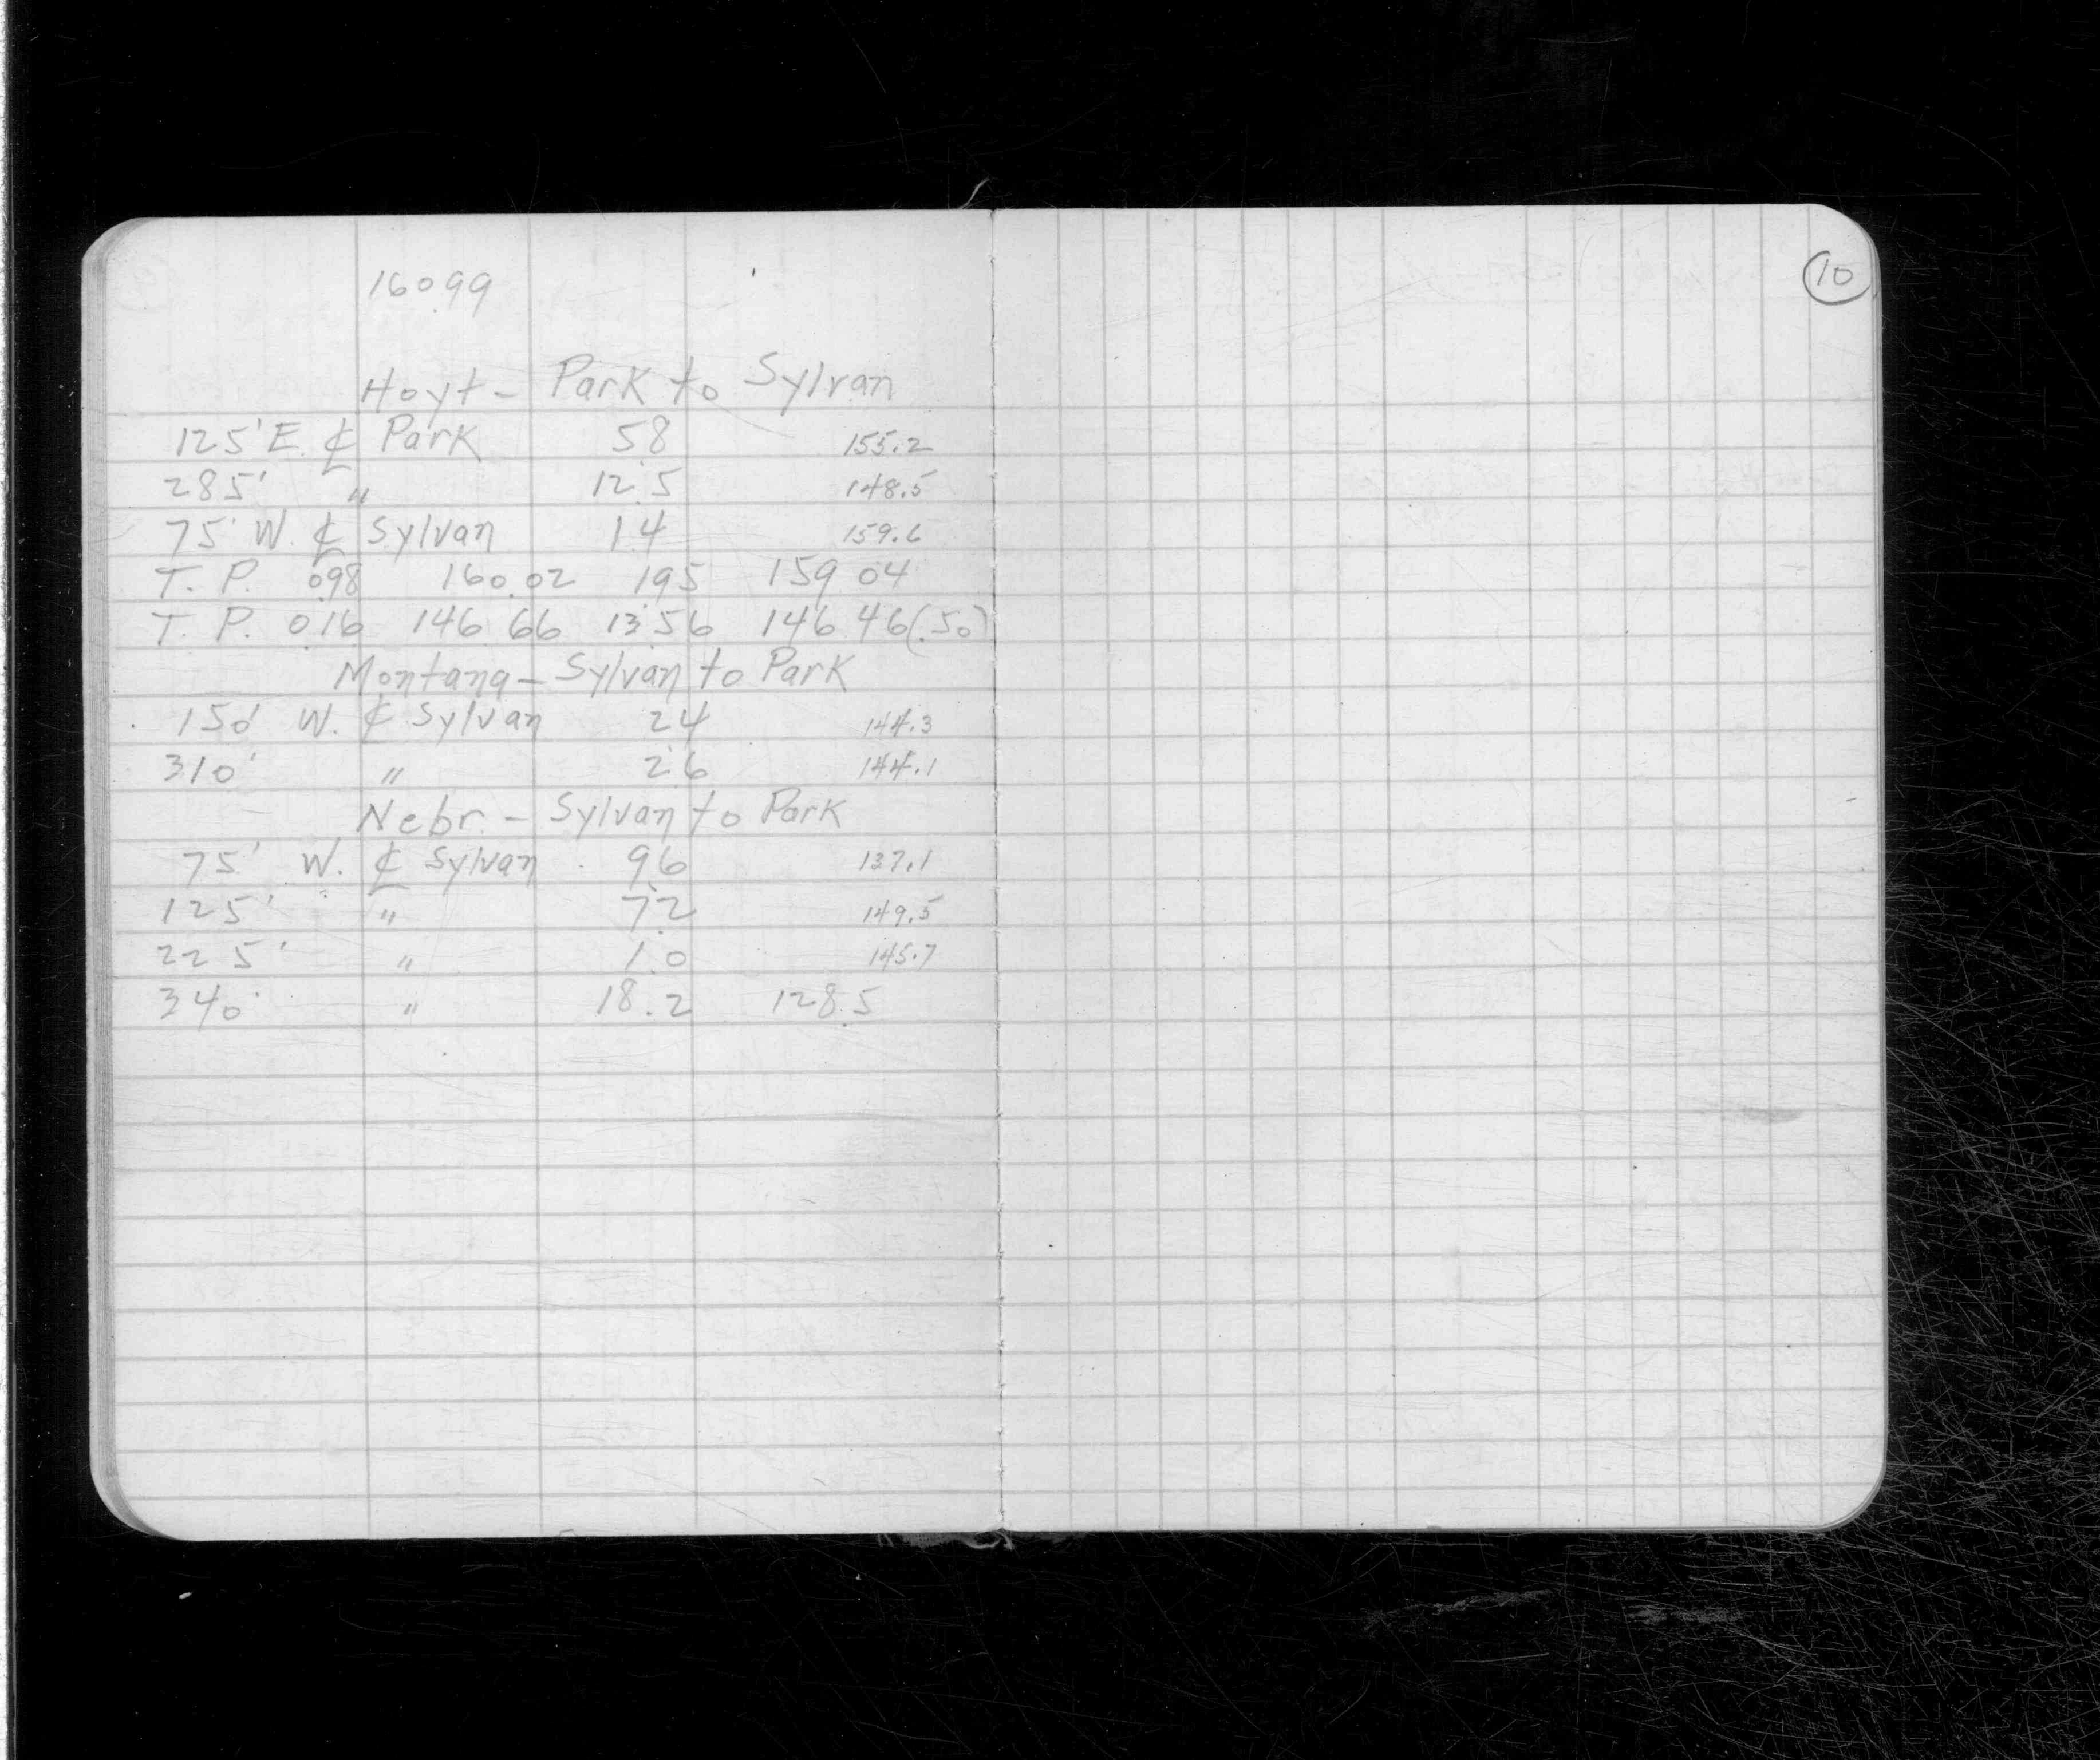 10
16099
Hoyt - Park to Sylvan
125' E. ℄ Park 5.8 155.2
285' " 12.5 148.5
75' W. ℄ Sylvan 1.4 159.6
T. P. 0.98 160.02 1.95 159 04
T. P. 0.16 146 66 13.56 146 46 (.50)
Montana - Sylvan to Park
150' W. ℄ Sylvan 2.4 144.3
310' " 2.6 144.1
Nebr. - Sylvan to Park
75' W. ℄ Sylvan 9.6 137.1
125' " 7.2 149.5
225' " 1.0 145.7
340' " 18.2 128.5